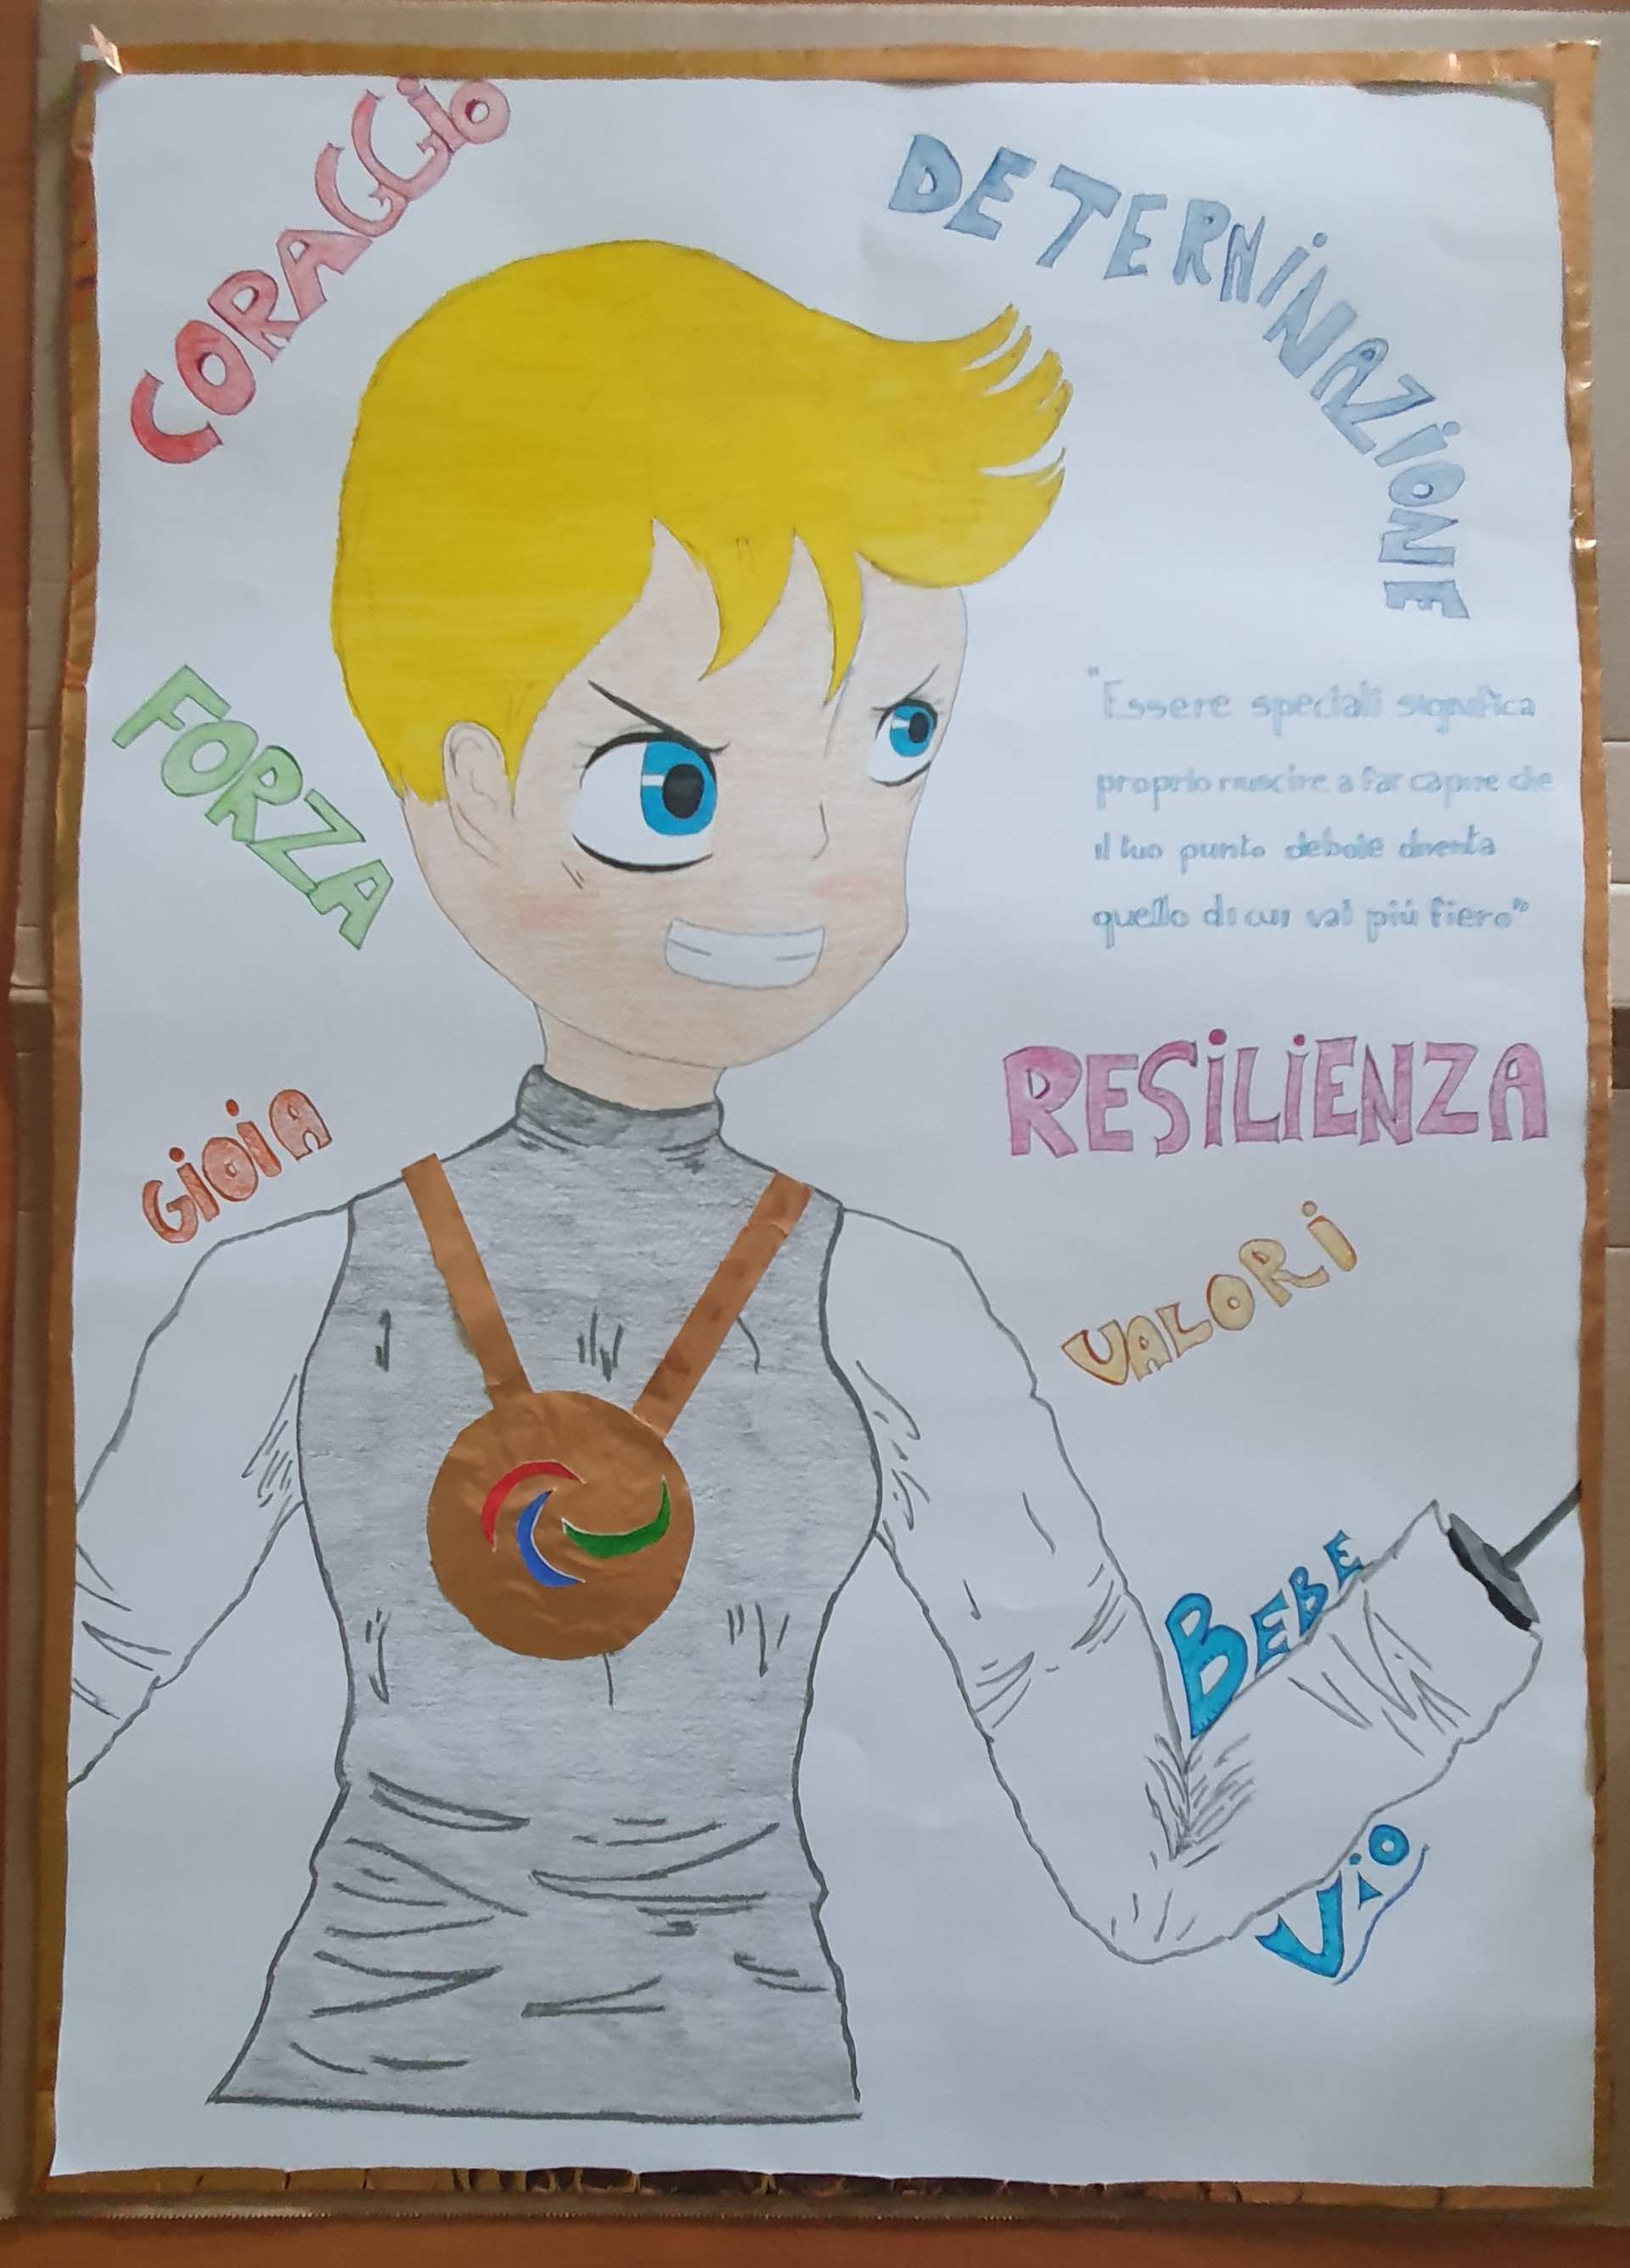 CORAGGiO
DETERNiNAZiONE
FORZA
"Essere speciali significa
proprio riuscire a far capire che
il tuo punto debole diventa
quello di cui vai più fiero"
RESiLiENZA
GiOiA
VALORi
BEBE
ViO